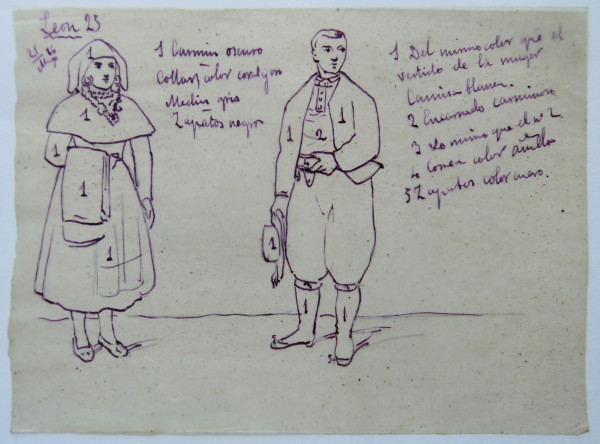 Leon 25
1 Carmin oscuro
Collar color coral y oro
Medias gris
Zapatos negros
1 Del mismo color que el
vestido de la mujer
Camisa blanca.
2 Encarnado carminoso
3 Lo mismo que el nº 2
4 Correa color
5 Zapatos color cuero.
1
1
1
1
1
1
2
1
1
1
1
5
5